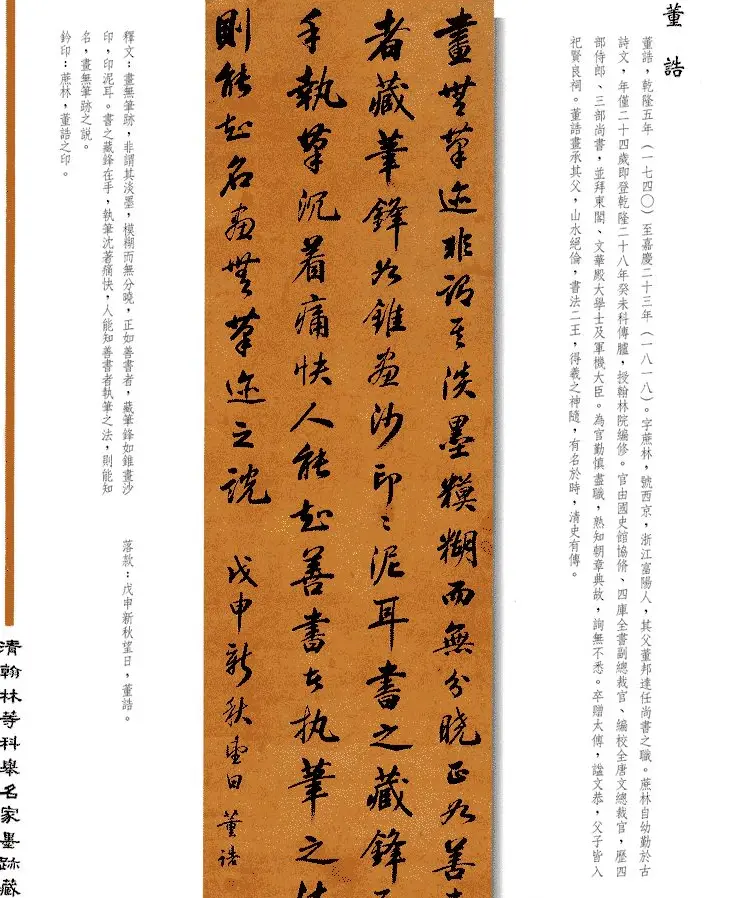 董誥
董誥,乾隆五年(一七四〇)至嘉慶二十三年(一八一八)。字蔗林,號西京,浙江富陽人,其父董邦達任尚書之職。蔗林自幼勤於古
詩文,年僅二十四歲即登乾隆二十八年癸未科傳臚,授翰林院編修。官由國史館協脩、四庫全書副總裁官、編校全唐文總裁官,歷四
部侍郎、三部尚書,並拜東閣、文華殿大學士及軍機大臣。為官勤慎盡職,熟知朝章典故,詢無不悉。卒贈太傅,諡文恭,父子皆入
祀賢良祠。董誥畫承其父,山水絕倫,書法二王,得羲之神隨,有名於時,清史有傳。
畫無筆迹非謂其淡墨糢糊而無分曉正如善
者藏筆鋒如錐畫沙印〻泥耳書之藏鋒
手執筆沉着痛快人能知善書者执筆之法
則能知名畫無筆迹之說 戊申新秋望日 董誥
釋文:畫無筆跡,非謂其淡墨,模糊而無分曉,正如善書者,藏筆鋒如錐畫沙
印,印泥耳。書之藏鋒在手,執筆沈著痛快,人能知善書者執筆之法,則能知
名,畫無筆跡之說。
鈐印:蔗林,董誥之印。
落款:戊申新秋望日,董誥。
清翰林等科舉名家墨跡藏